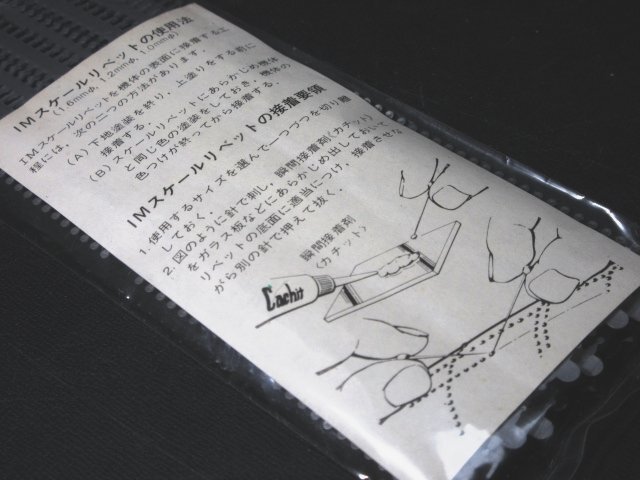 IMスケールリベットの使用法
(1.6mmφ, 1.2mmφ, 1.0mmφ)
IMスケールリベットを機体の表面に接着する工
程には、次の二つの方法があります。
(A) 下地塗装を終り，上塗りをする前に
接着する。
(B) スケールリベットにあらかじめ機体
と同じ色の塗装をしておき，機体の
色つけが終ってから接着する。
IMスケールリベットの接着要領
1. 使用するサイズを選んで一つづつを切り離
しておく。
2. 図のように針で刺し，瞬間接着剤〈カチット〉
をガラス板などにあらかじめ出しておいて，
リベットの底面に適当につけ，接着させな
がら別の針で押えて抜く．
瞬間接着剤
〈カチット〉
Cachit